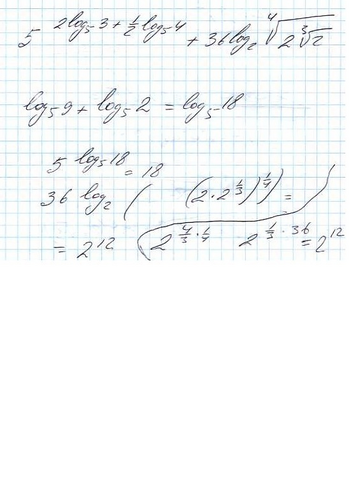 5^{2log_5 3 + \frac{1}{2} log_5 4} + 36 log_2 \sqrt[4]{2\sqrt[3]{2}}
log_5 9 + log_5 2 = log_5 18
5^{log_5 18} = 18
36 log_2 ( (2 · 2^{\frac{1}{3}})^{\frac{1}{4}} ) =
= 2^{12} ( 2^{\frac{4}{3} · \frac{1}{4}} 2^{\frac{1}{3} · 36} = 2^{12}